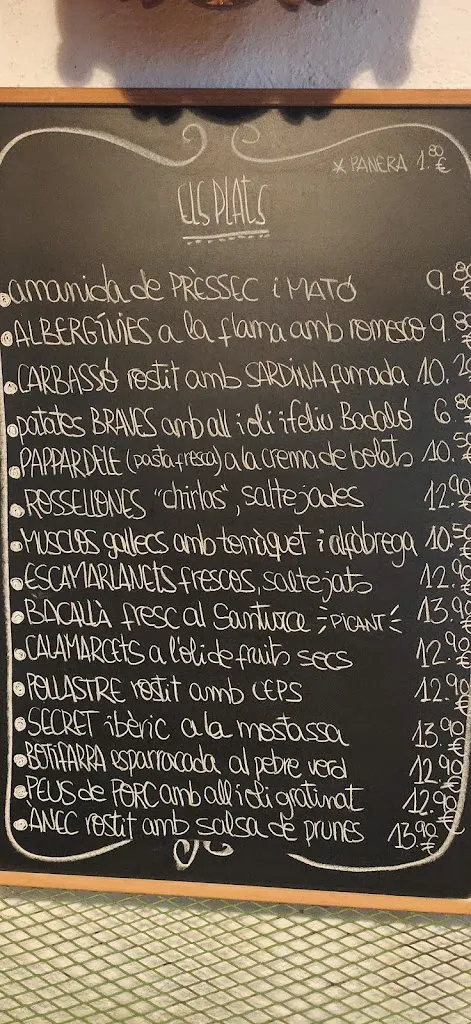 * PANERA 1.80 €
ELS PLATS
amanida de PRÈSSEC i MATÓ 9.80 €
ALBERGÍNIES a la flama amb romesco 9.80 €
CARBASSÓ rostit amb SARDINA fumada 10.20 €
patates BRAVES amb all i oli i feliu Badaló 6.80 €
PAPPARDELE (pasta fresca) a la crema de bolets 10.50 €
ROSSELLONES "chirlas", saltejades 12.90 €
MUSCLOS gallecs amb tomàquet i alfàbrega 10.50 €
ESCAMARLANETS frescos, saltejats 12.90 €
BACALLÀ fresc al Santurce PICANT 13.90 €
CALAMARCETS a l'oli de fruits secs 12.90 €
POLLASTRE rostit amb CEPS 12.90 €
SECRET ibèric a la mostassa 13.90 €
BOTIFARRA esparracada al pebre verd 12.90 €
PEUS de PORC amb all i oli gratinat 12.90 €
ANEC rostit amb salsa de prunes 13.90 €